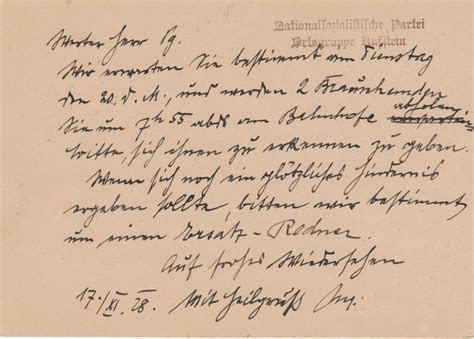 Nationalsozialistische Partei
Ortsgruppe Kufstein
Werter Herr Pg.
Wir erwarten Sie bestimmt am Dienstag
den 20. d. M., und werden 2 Braunhemden
Sie um 7h 55 abds am Bahnhofe abholen
bitte, sich ihnen zu erkennen zu geben.
Wenn sich noch ein plötzliches Hindernis
ergeben sollte, bitten wir bestimmt
um einen Ersatz-Redner.
Auf frohes Wiedersehen
17./XI. 28. Mit Heilgruß